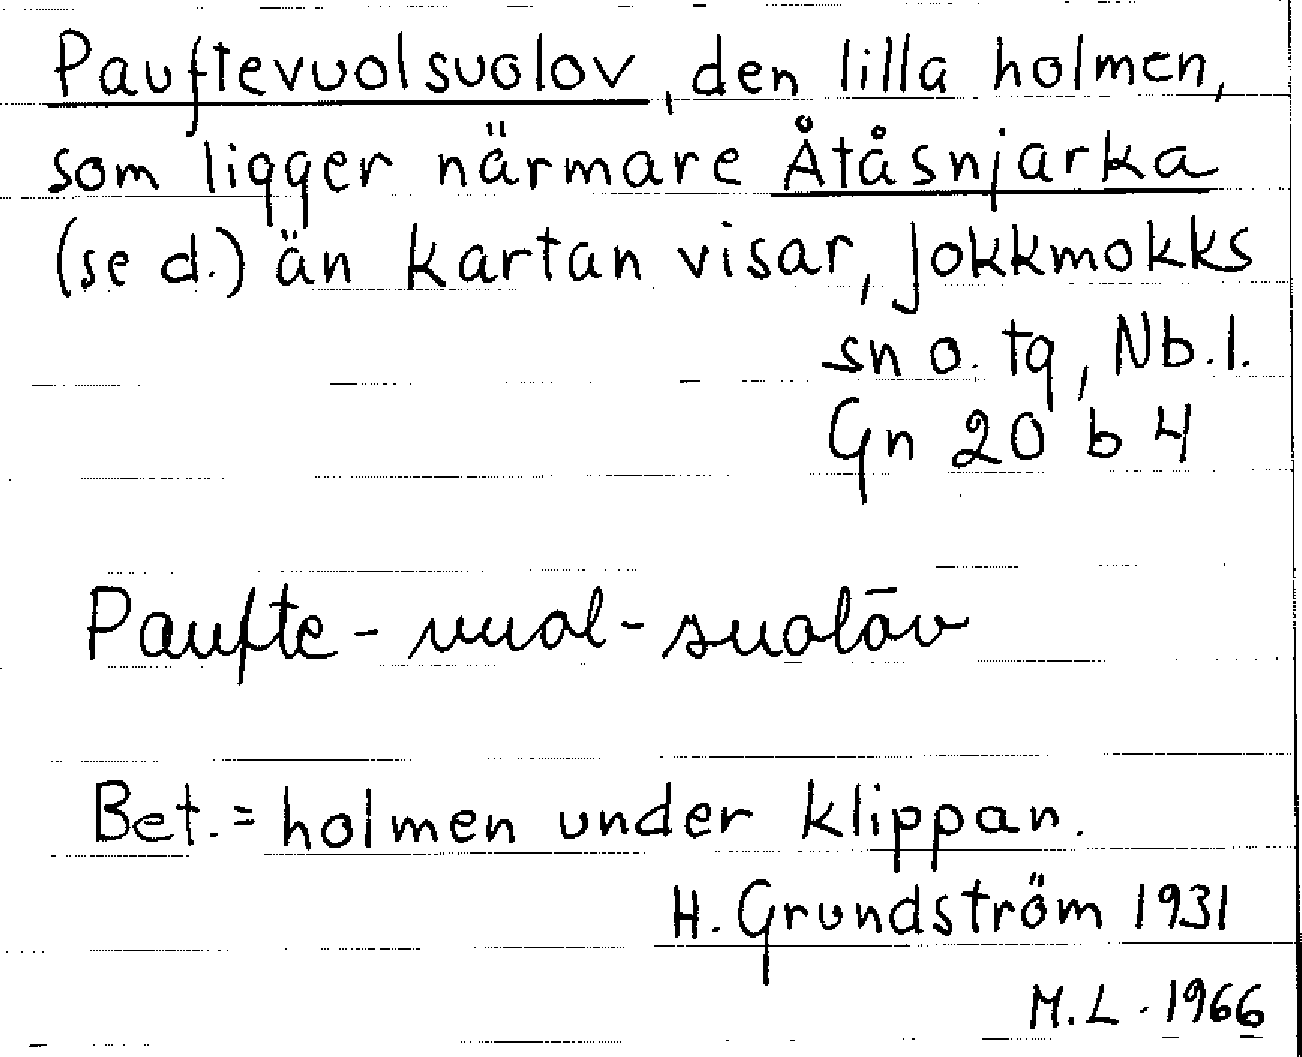 Pauftevuolsuolov, den lilla holmen,
som ligger närmare Åtåsnjarka
(se d.) än kartan visar, Jokkmokks
sn o. tg, Nb.l.
Gn 20 b 4
Paufte-vuol-suolāv
Bet. = holmen under klippan.
H. Grundström 1931
M.L. 1966